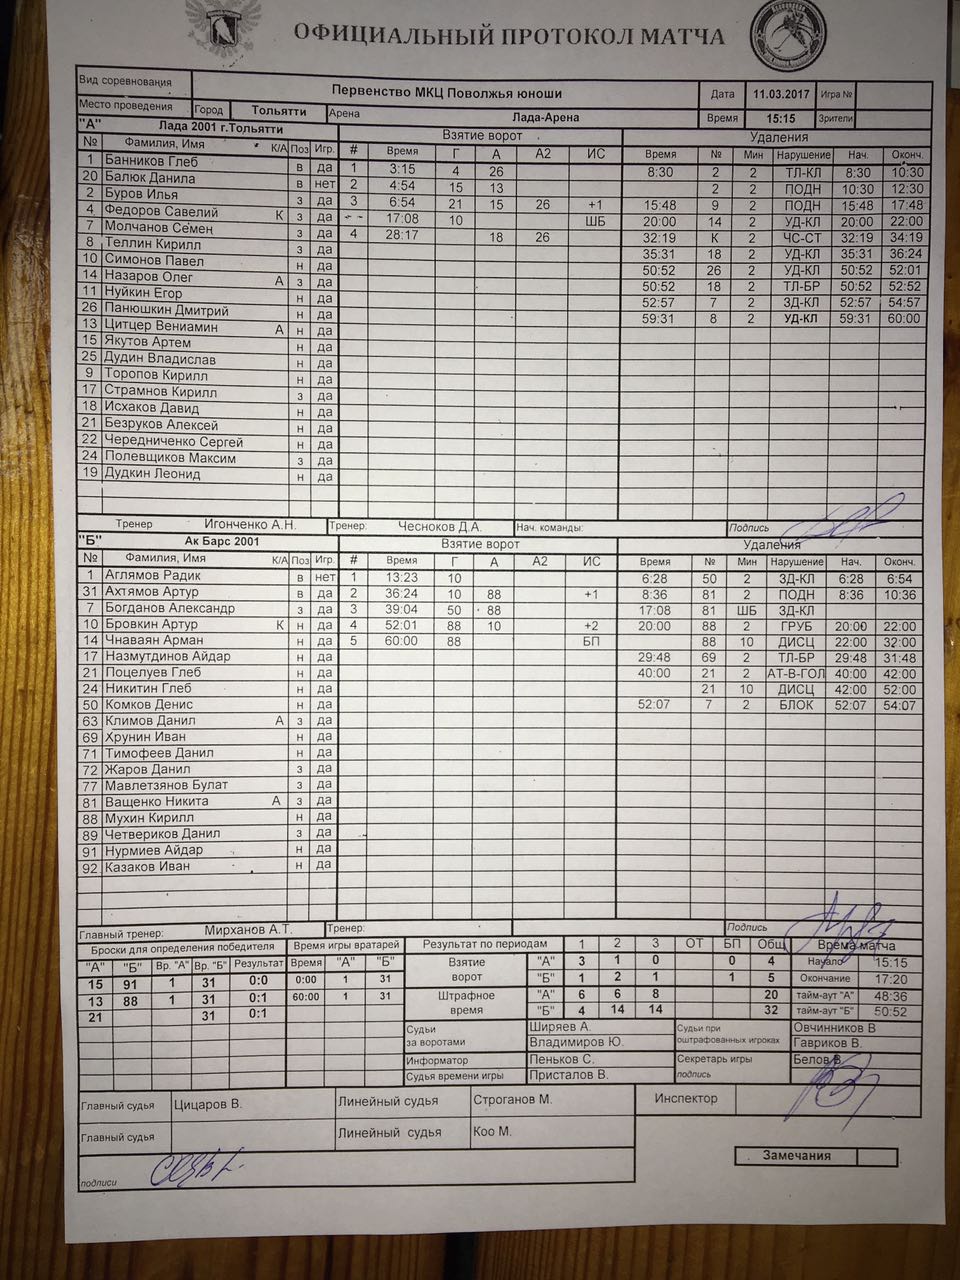 ОФИЦИАЛЬНЫЙ ПРОТОКОЛ МАТЧА
Вид соревнования Первенство МКЦ Поволжья юноши Дата 11.03.2017 Игра №
Место проведения Город Тольятти Арена Лада-Арена Время 15:15 Зрители
"А" Лада 2001 г.Тольятти Взятие ворот Удаления
№ Фамилия, Имя К/А Поз Игр. # Время Г А А2 ИС Время № Мин Нарушение Нач. Оконч.
1 Банников Глеб в да 1 3:15 4 26 8:30 2 2 ТЛ-КЛ 8:30 10:30
20 Балюк Данила в нет 2 4:54 15 13 2 2 ПОДН 10:30 12:30
2 Буров Илья з да 3 6:54 21 15 26 +1 15:48 9 2 ПОДН 15:48 17:48
4 Федоров Савелий К з да -- 17:08 10 ШБ 20:00 14 2 УД-КЛ 20:00 22:00
7 Молчанов Семен з да 4 28:17 18 26 32:19 К 2 ЧС-СТ 32:19 34:19
8 Теллин Кирилл з да 35:31 18 2 УД-КЛ 35:31 36:24
10 Симонов Павел н да 50:52 26 2 УД-КЛ 50:52 52:01
14 Назаров Олег А з да 50:52 18 2 ТЛ-БР 50:52 52:52
11 Нуйкин Егор н да 52:57 7 2 ЗД-КЛ 52:57 54:57
26 Панюшкин Дмитрий н да 59:31 8 2 УД-КЛ 59:31 60:00
13 Цитцер Вениамин А н да
15 Якутов Артем н да
25 Дудин Владислав н да
9 Торопов Кирилл н да
17 Страмнов Кирилл з да
18 Исхаков Давид н да
21 Безруков Алексей н да
22 Чередниченко Сергей н да
24 Полевщиков Максим з да
19 Дудкин Леонид н да
Тренер Игонченко А.Н. Тренер: Чесноков Д.А. Нач. команды: Подпись
"Б" Ак Барс 2001 Взятие ворот Удаления
№ Фамилия, Имя К/А Поз Игр. # Время Г А А2 ИС Время № Мин Нарушение Нач. Оконч.
1 Аглямов Радик в нет 1 13:23 10 6:28 50 2 ЗД-КЛ 6:28 6:54
31 Ахтямов Артур в да 2 36:24 10 88 +1 8:36 81 2 ПОДН 8:36 10:36
7 Богданов Александр з да 3 39:04 50 88 17:08 81 ШБ ЗД-КЛ
10 Бровкин Артур К н да 4 52:01 88 10 +2 20:00 88 2 ГРУБ 20:00 22:00
14 Чнаваян Арман н да 5 60:00 88 БП 88 10 ДИСЦ 22:00 32:00
17 Назмутдинов Айдар н да 29:48 69 2 ТЛ-БР 29:48 31:48
21 Поцелуев Глеб н да 40:00 21 2 АТ-В-ГОЛ 40:00 42:00
24 Никитин Глеб н да 21 10 ДИСЦ 42:00 52:00
50 Комков Денис н да 52:07 7 2 БЛОК 52:07 54:07
63 Климов Данил А з да
69 Хрунин Иван н да
71 Тимофеев Данил н да
72 Жаров Данил з да
77 Мавлетзянов Булат з да
81 Ващенко Никита А з да
88 Мухин Кирилл н да
89 Четвериков Данил з да
91 Нурмиев Айдар н да
92 Казаков Иван н да
Главный тренер: Мирханов А.Т. Тренер: Подпись
Броски для определения победителя Время игры вратарей Результат по периодам 1 2 3 ОТ БП Общ Время матча
"А" "Б" Вр. "А" Вр. "Б" Результат Время "А" "Б" Взятие ворот "А" 3 1 0 0 4 Начало 15:15
15 91 1 31 0:0 0:00 1 31 "Б" 1 2 1 1 5 Окончание 17:20
13 88 1 31 0:1 60:00 1 31 Штрафное время "А" 6 6 8 20 тайм-аут "А" 48:36
21 31 0:1 "Б" 4 14 14 32 тайм-аут "Б" 50:52
Судьи за воротами Ширяев А. Судьи при оштрафованных игроках Овчинников В
Владимиров Ю. Гавриков В.
Информатор Пеньков С. Секретарь игры Белов В.
Судья времени игры Присталов В. подпись
Главный судья Цицаров В. Линейный судья Строганов М. Инспектор
Главный судья Линейный судья Коо М.
Замечания
подписи